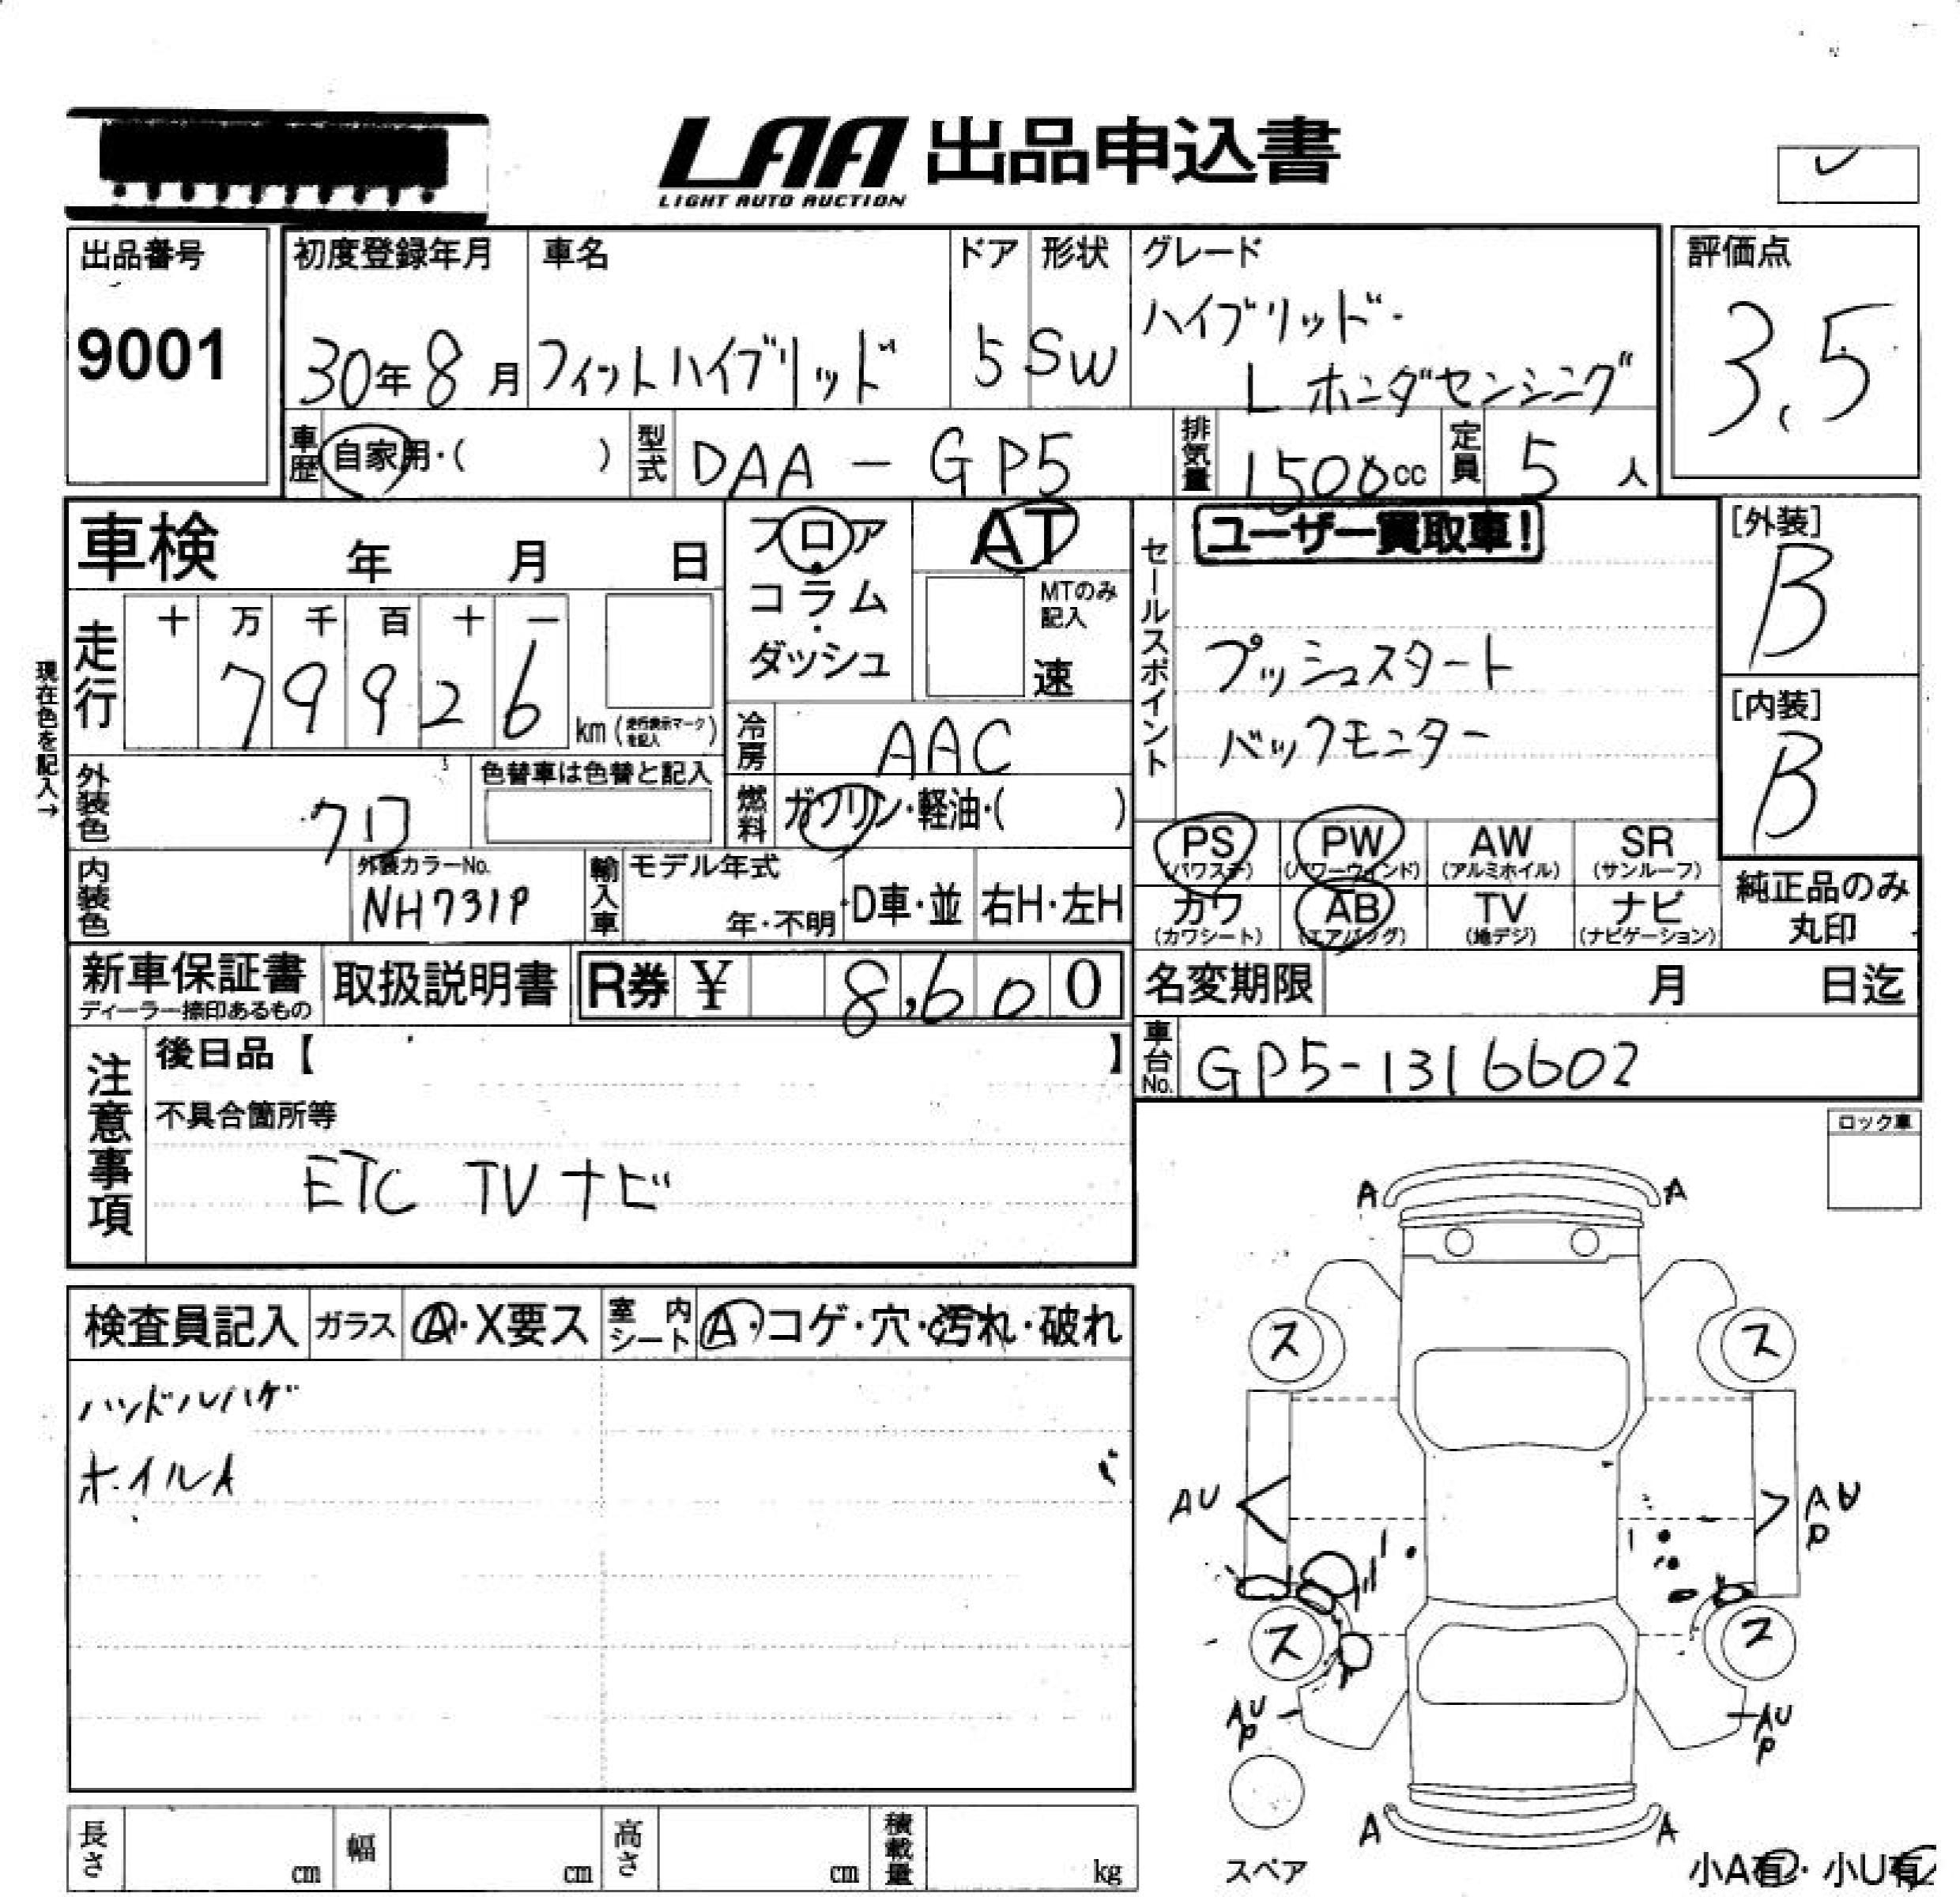 LAA 出品申込書
LIGHT AUTO AUCTION
出品番号
9001
初度登録年月
30年8月
車名
フィットハイブリッド
ドア
5
形状
SW
グレード
ハイブリッド・
L ホンダセンシング
評価点
3.5
車歴 自家用・( )
型式 DAA-GP5
排気量 1500cc
定員 5人
車検 年 月 日
フロア・コラム・ダッシュ
AT
MTのみ記入
速
セールスポイント
ユーザー買取車!
プッシュスタート
バックモニター
[外装]
B
[内装]
B
現在色を記入→
走行
十 万 千 百 十 一
7 9 9 2 6
km (走行表示マークを記入)
冷房 AAC
燃料 ガソリン・軽油・( )
外装色 クロ
色替車は色替と記入
内装色
外装カラーNo.
NH731P
輸入車
モデル年式
年・不明
D車・並
右H・左H
PS (パワステ)
PW (パワーウィンド)
AW (アルミホイル)
SR (サンルーフ)
カワ (カワシート)
AB (エアバッグ)
TV (地デジ)
ナビ (ナビゲーション)
純正品のみ
丸印
新車保証書
ディーラー捺印あるもの
取扱説明書
R券 ¥ 8,600
名変期限 月 日迄
車台No. GP5-1316602
注意事項
後日品【 】
不具合箇所等
ETC TV ナビ
ロック車
検査員記入
ガラス A・X要ス
室内シート A・コゲ・穴・汚れ・破れ
ハンドルハゲ
ホイルA
A A
ス ス
AU
AU
P
ス ス
AU
P
AU
P
A A
スペア
小A有・小U有
長さ cm
幅 cm
高さ cm
積載量 kg